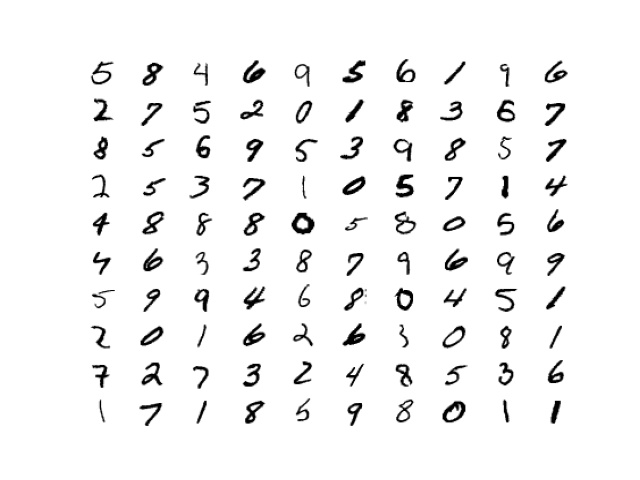 5 8 4 6 9 5 6 1 9 6
2 7 5 2 0 1 8 3 6 7
8 5 6 9 5 3 9 8 5 7
2 5 3 7 1 0 5 7 1 4
4 8 8 8 0 5 8 0 5 6
4 6 3 3 8 7 9 6 9 9
5 9 9 4 6 8 0 4 5 1
2 0 1 6 2 6 3 0 8 1
7 2 7 3 2 4 8 5 3 6
1 7 1 8 5 9 8 0 1 1